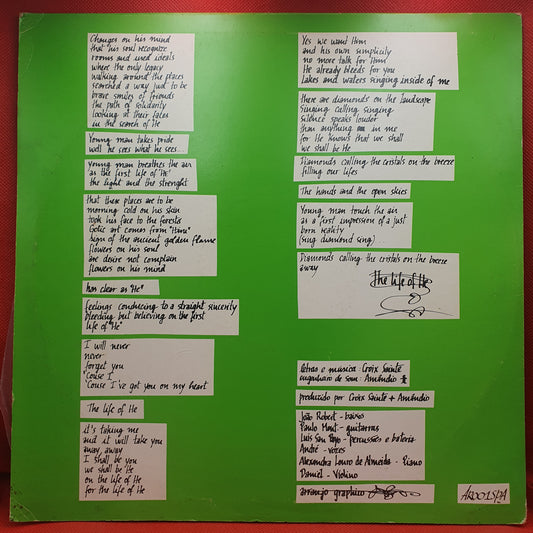 Changes on his mind
that his soul recognize
rooms and used ideals
where the only legacy
walking around the places
searched a way just to be
brave smiles of friends
the path of solidarity
looking at their fates
in the search of He
Young man takes pride
well he sees what he sees...
Young man breathes the air
as the first life of "He"
the light and the strenght
that these places are to be
morning cold on his skin
took his face to the forests
Gotic art comes from "Him"
sign of the ancient golden flame
flowers on his soul
are desire not complain
flowers on his mind
has clear as "He"
feelings conducing to a straight sincerity
bleeding but believing on the first
life of "He"
I will never
never
forget you
'Couse I
'Couse I've got you on my heart
The life of He
it's taking me
and it will take you
away, away
I shall be you
we shall be He
on the life of He
for the life of He
Yes we want Him
and his own simplicity
no more talk for Him
He already bleeds for you
Lakes and waters singing inside of me
there are diamonds on the landscape
Singing calling singing
silence speaks louder
than anything in me
for He knows that we shall
we shall be He
Diamonds calling the cristals on the breeze
filling our lifes
The hands and the open skies
Young man touch the air
as a first impression of a just
born reality
(sing diamond sing)
Diamonds calling the cristals on the breeze
away
The life of He
letras e musica: Croix Sainte
engenheiro de som: Amândio
produzido por Croix Sainte + Amândio
João Robert - baixos
Paulo - guitarras
Luis San - percussões e bateria
André - vozes
Alexandra Louro de Almeida - Piano
Daniel - Violino
arranjo graphico